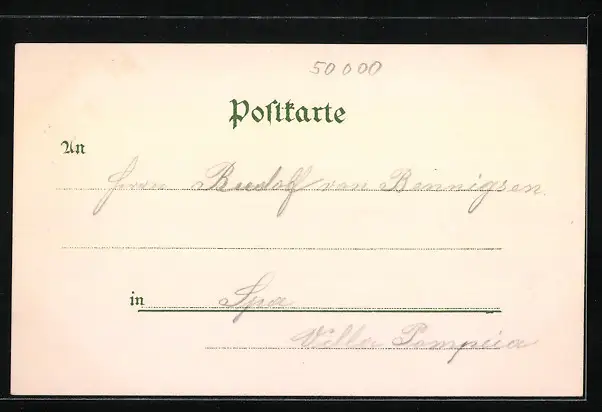 50000
Postkarte
An
Herrn Rudolf von Bennigsen
in Spa
Villa Pompeia